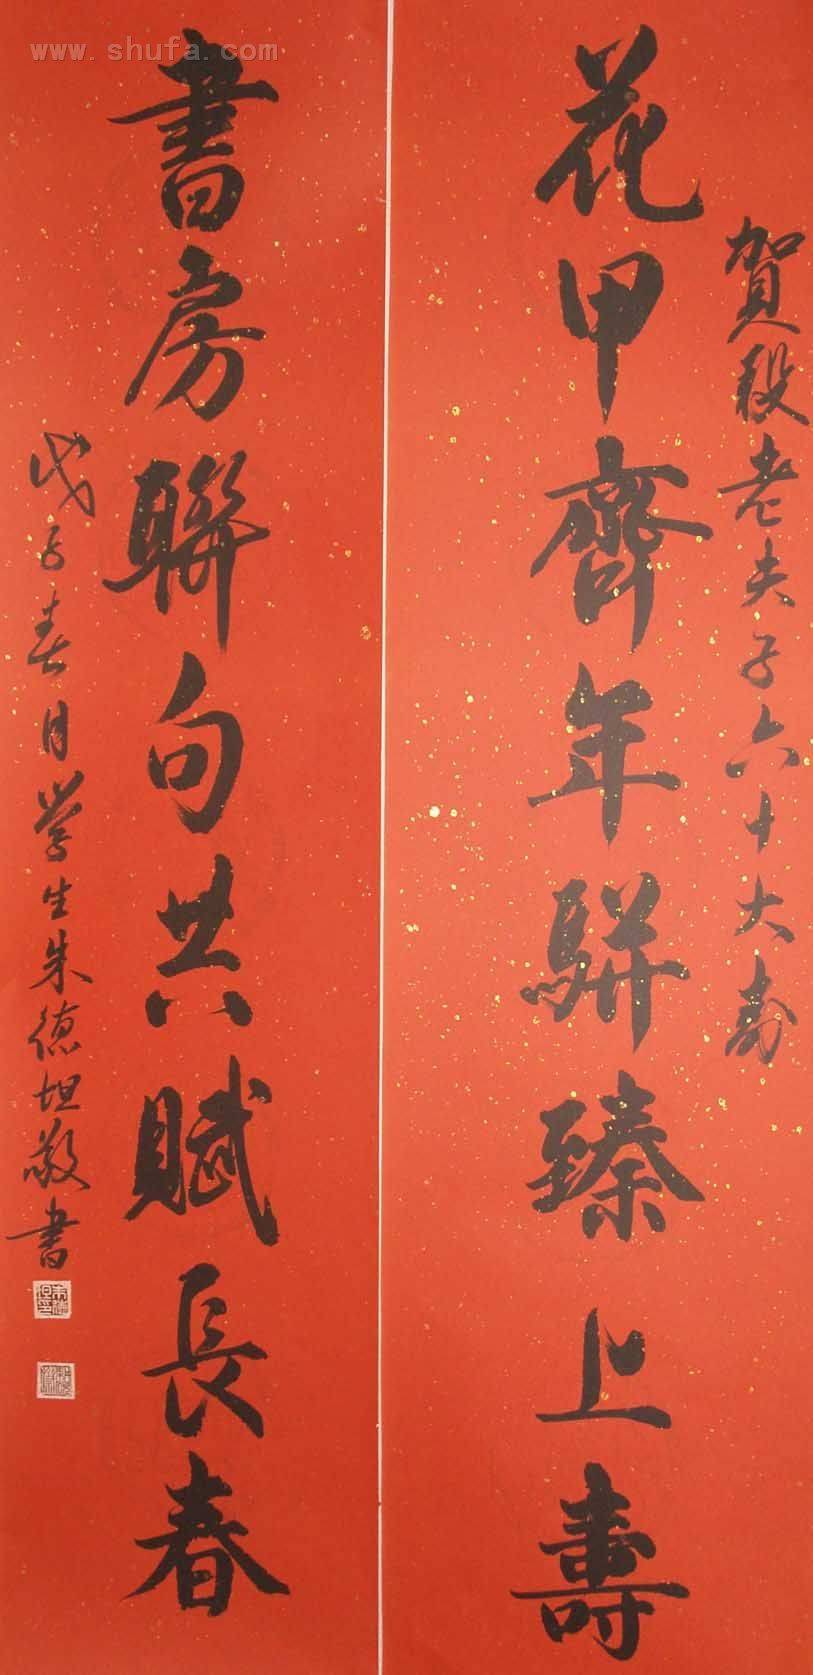 www.shufa.com
賀段老夫子六十大寿
花甲齊年駢臻上壽
書房聯句共賦長春
戊子春月学生朱德坦敬書